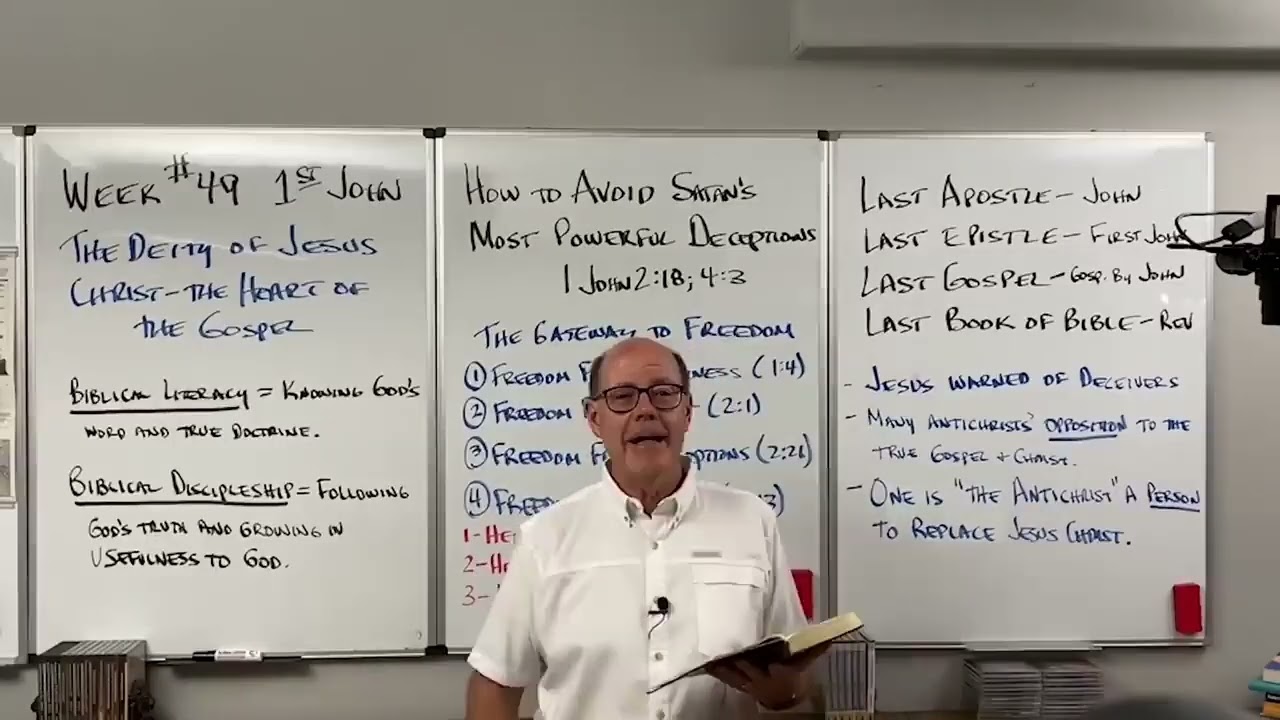 WEEK #49 1ST JOHN
THE DEITY OF JESUS
CHRIST-THE HEART OF
THE GOSPEL
BIBLICAL LITERACY = KNOWING GOD'S
WORD AND TRUE DOCTRINE.
BIBLICAL DISCIPLESHIP = FOLLOWING
GOD'S TRUTH AND GROWING IN
USEFULNESS TO GOD.
HOW TO AVOID SATAN'S
MOST POWERFUL DECEPTIONS
1 JOHN 2:18; 4:3
THE GATEWAY TO FREEDOM
① FREEDOM (1:4)
② FREEDOM (2:1)
③ FREEDOM (2:26)
④
1-
2-
3-
LAST APOSTLE- JOHN
LAST EPISTLE- FIRST JOHN
LAST GOSPEL- GOSP. BY JOHN
LAST BOOK OF BIBLE- REV
- JESUS WARNED OF DECEIVERS
- MANY ANTICHRISTS' OPPOSITION TO THE
TRUE GOSPEL + CHRIST.
- ONE IS "THE ANTICHRIST" A PERSON
TO REPLACE JESUS CHRIST.